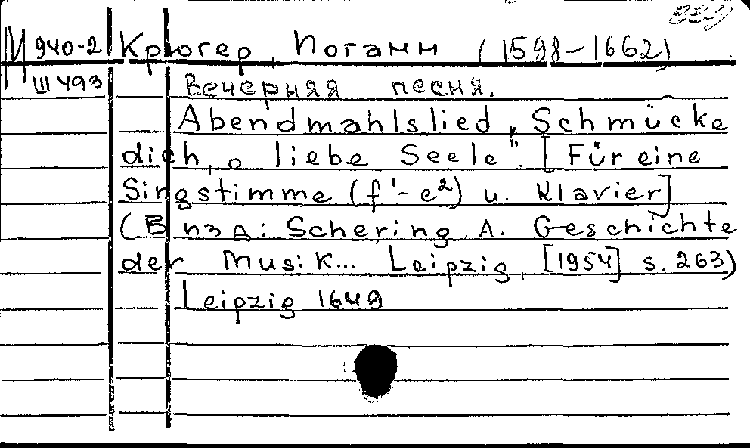 М 940-2 Крюгер, Иоганн (1598-1662)
Ш 493 Вечерняя песня.
Abendmahlslied „Schmücke
dich, o liebe Seele". [Für eine
Singstimme (f'-e²) u. Klavier]
(В изд: Schering A. Geschichte
der Musik... Leipzig, [1954] s. 263)
Leipzig 1649